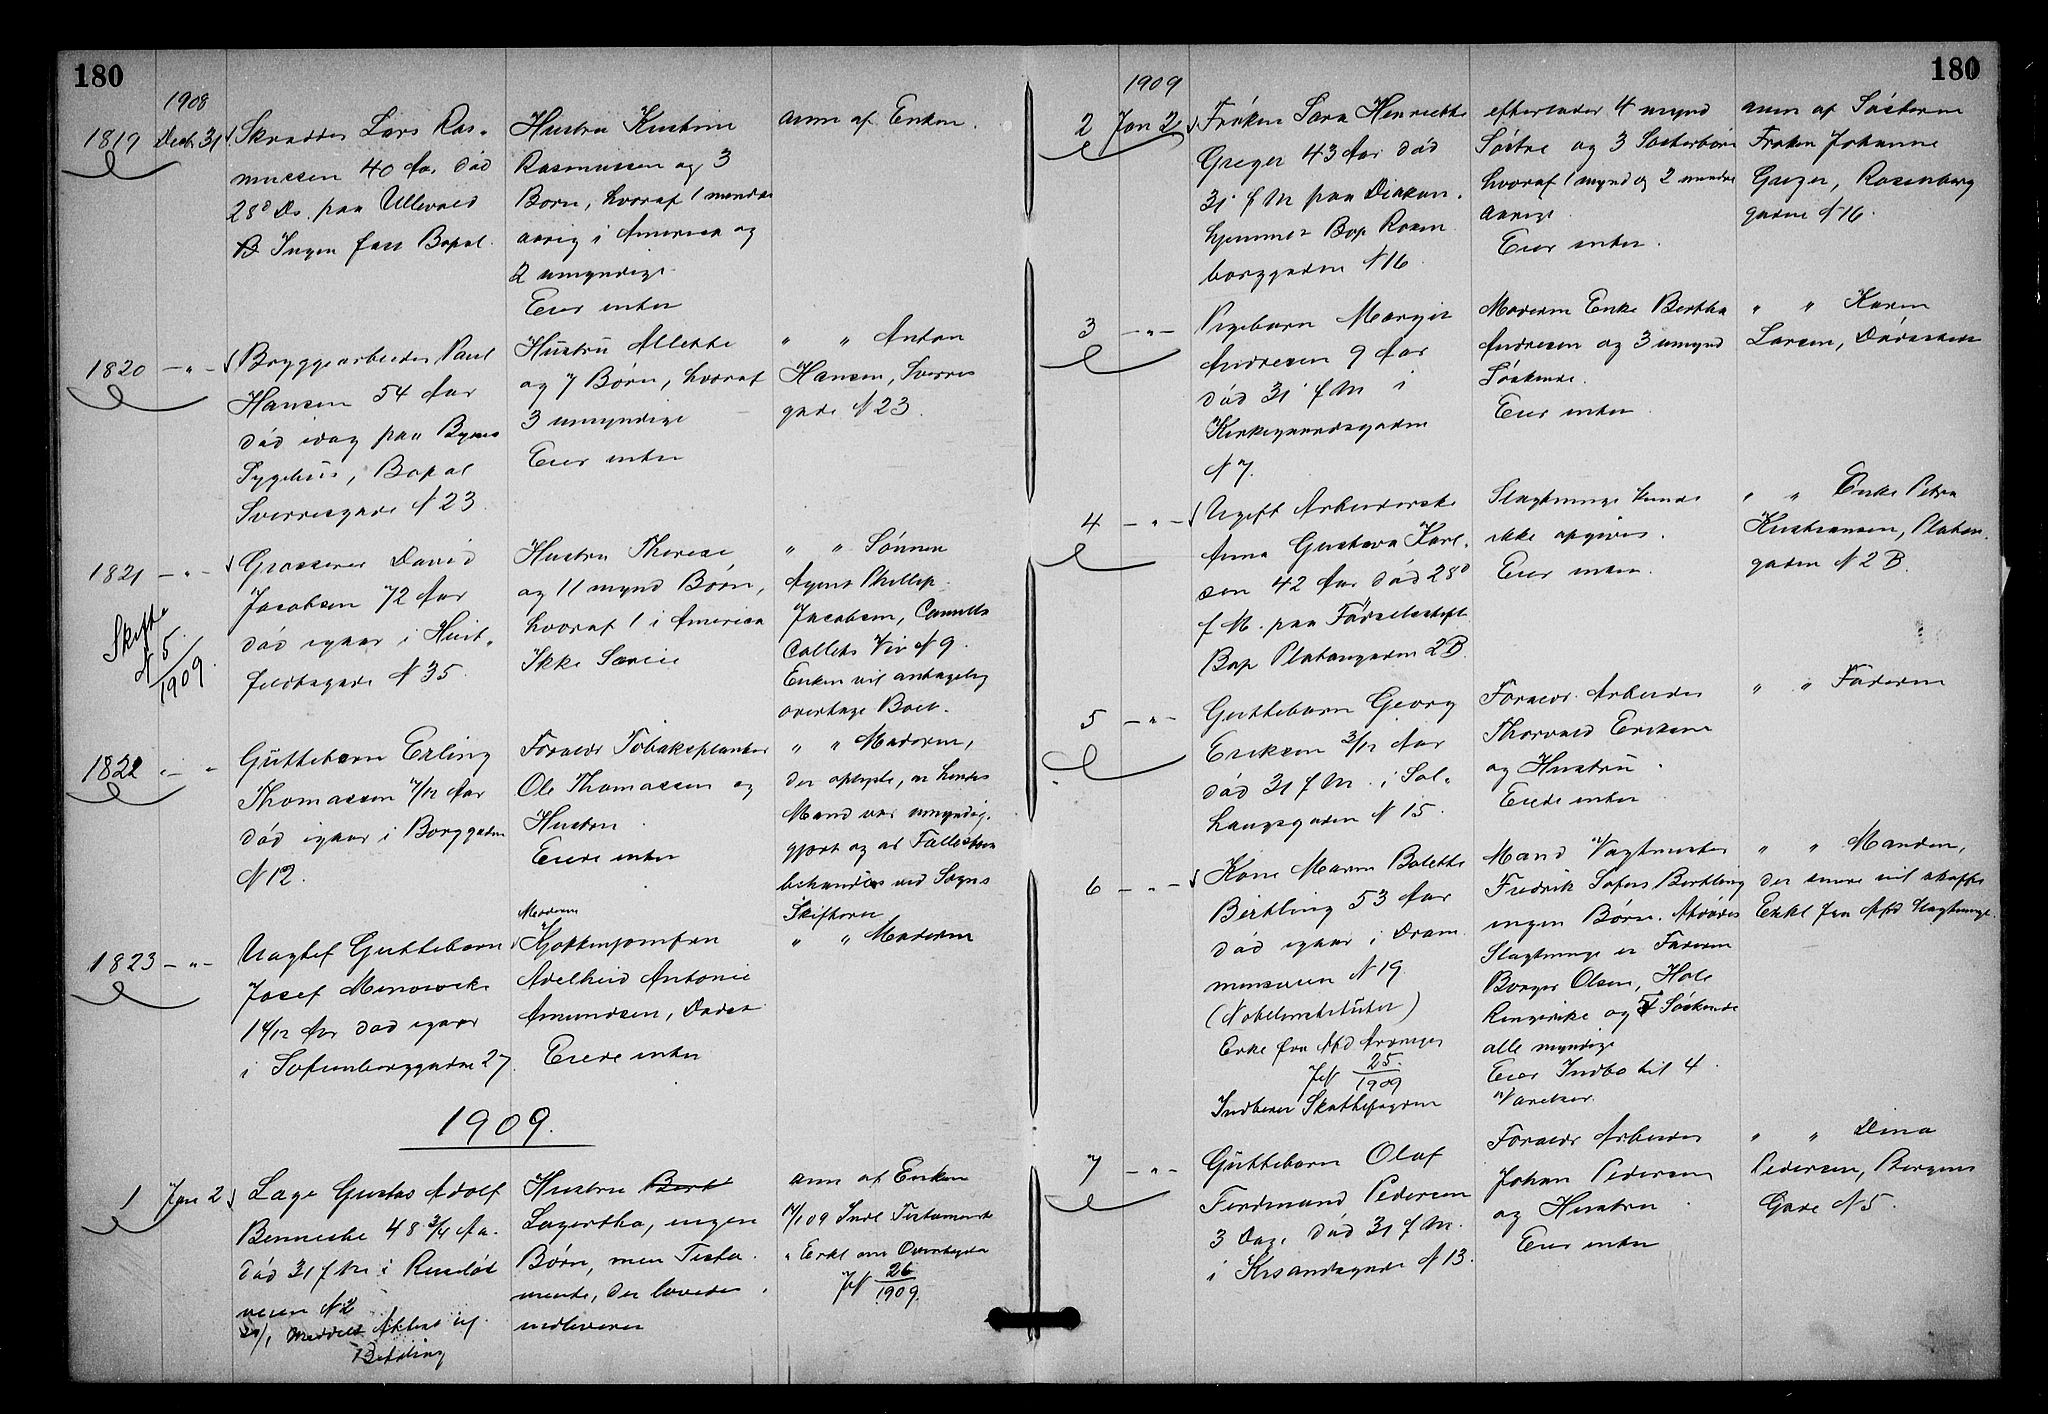 180
1908
1819 Decbr 31 Skrædder Lars Ras-
mussen 40 Aar død
28d Ds. paa Ullevold
Ingen fast Bopæl.
Hustru Kristine
Rasmussen og 3
Børn, hvoraf 1 mindre
aarig i America og
2 umyndige
Eier intet
anm af Enken.
1820 -"- Bryggearbeider Paul
Hansen 54 Aar
død idag paa Byens
Sygehus, Bopæl
Sverresgade N 23.
Hustru Allette
og 7 Børn, hvoraf
3 umyndige
Eier intet
" " Anton
Hansen, Sverres
gade N 23.
1821 -"- Grosserer David
Jacobsen 72 Aar
død igaar i Huit-
feldtsgade N 35.
Skifte
N 5/1909.
Hustru Therese
og 11 mynd Børn,
hvoraf 1 i America
Ikke Særeie
" " Sønnen
Agent Phillip
Jacobsen, Camilla
Colletts Vei N 9.
Enken vil antagelig
overtage Boet.
1822 -"- Guttebarn Erling
Thomassen 7/12 Aar
død igaar i Borggaden
N 12.
Forældr Tobaksplanter
Ole Thomassen og
Hustru
Eiede intet
" " Moderen,
der oplyste, at hendes
Mand var umyndig-
gjort og at Fællesboen
behandles ved Sogns
Skifteret
1823 -"- Uægtef Guttebarn
Josef
1 4/12 Aar død igaar
i Sofienberggaden 27.
Moderen
Kjøkkenjomfru
Adelheid Antonie
Amundsen,
Eiede intet
" " Moderen
1909.
1 Jan 2 Læge Gustav Adolf
Benneche 48 3/4 Aa.
død 31 f M i Ruseløk
veien N 2
20/1 Meddelt Attest
Hustru Bert
Lagertha, ingen
Børn, men Testa
mente, der lovedes
indleveret
anm af Enken
Indl Testamente
" Erkl om Overtagelse
JN 26/1909.
180
1909
2 Jan 2 Frøken Sara Henriette
Greger 43 Aar død
31 f M paa Diakon.
hjemmet Bop Rosen
borggaden N 16.
efterlader 4 mynd
Søstre og 3 Søsterbørn
hvoraf 1 mynd og 2 mindre
aarige.
Eier intet.
anm af Søsteren
Frøken Johanne
Greger, Rosenborg
gaden N 16.
3 -"- Pigebarn Margit
Andresen 9 Aar
død 31 f M i
Kirkegaardsgaden
N 7.
Moderen Enke Bertha
Andresen og 3 umynd
Søskende.
Eier intet
" " Karen
Larsen,
4 -"- Ugift Arbeiderske
Anna Gustava Karl-
sen 42 Aar død 28d
f M. paa Fødselsstift
Bop Platougaden 2B.
Slægtninge kunde
ikke opgives.
Eier intet.
" " Enke Petra
Kristiansen, Platou-
gaden N 2 B.
5 -"- Guttebarn Georg
Eriksen 3/12 Aar
død 31 f M. i Sol-
haugsgaden N 15.
Forældr. Arbeider
Thorvald Eriksen
og Hustru.
Eiede intet
" " Faderen
6 -"- Kone Maren Bolette
Bertling 53 Aar
død igaar i Dram
mensveien N 19
(Nobelinstitutet)
Erkl fra Afd Arvinger
JN 25/1909
Indberet Skattefogden
Mand Vagtmester
Fredrik Sofus Bertling
ingen Børn. Afdødes
Slægtninge er Faderen
Borger Olsen, Hole
Ringerike og 5 Søskende
alle myndige
Eier Indbo til 4
Værelser.
" " Manden,
der senere vil skaffe
Erkl fra Afd Slægtninge.
7 -"- Guttebarn Olaf
Ferdinand Pedersen
3 Dage død 31 f M.
i Krsandsgade N 13.
Forældr Arbeider
Johan Pedersen
og Hustru
Eier intet
" " Dina
Pedersen, Bergens
Gade N 5.